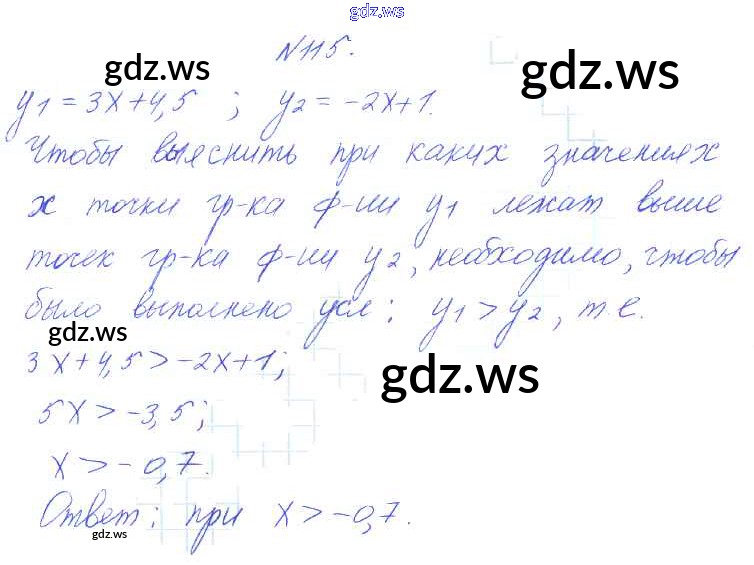 gdz.ws
№115.
gdz.ws
gdz.ws
y1 = 3x+4,5 ; y2 = -2x+1.
Чтобы выяснить при каких значениях
x точки гр-ка ф-ии y1 лежат выше
точек гр-ка ф-ии y2, необходимо, чтобы
было выполнено усл: y1 > y2, т.е.
gdz.ws
3x+4,5 > -2x+1;
gdz.ws
5x > -3,5;
x > -0,7.
Ответ: при x > -0,7.
gdz.ws